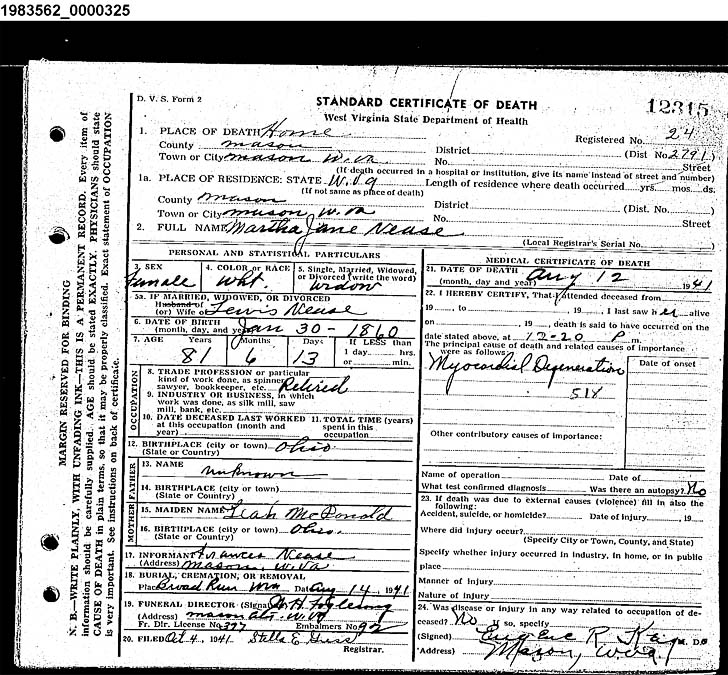 1983562_0000325
MARGIN RESERVED FOR BINDING
N. B.—WRITE PLAINLY, WITH UNFADING INK—THIS IS A PERMANENT RECORD. Every item of
information should be carefully supplied. AGE should be stated EXACTLY. PHYSICIANS should state
CAUSE OF DEATH in plain terms, so that it may be properly classified. Exact statement of OCCUPATION
is very important. See instructions on back of certificate.
D. V. S. Form 2
STANDARD CERTIFICATE OF DEATH
12315
West Virginia State Department of Health
1. PLACE OF DEATH Home Registered No. 24
County Mason District (Dist No. 2791)
Town or City Mason W. Va No. Street
(If death occurred in a hospital or institution, give its name instead of street and number)
1a. PLACE OF RESIDENCE: STATE W. Va Length of residence where death occurred yrs. mos. ds.
(If not same as place of death)
County Mason District (Dist. No. )
Town or City Mason, W. Va No. Street
2. FULL NAME Martha Jane Nease
(Local Registrar's Serial No. )
PERSONAL AND STATISTICAL PARTICULARS
3. SEX Female
4. COLOR or RACE Wht.
5. Single, Married, Widowed, or Divorced (write the word) Widow
5a. IF MARRIED, WIDOWED, OR DIVORCED
Husband of
(or) Wife of Lewis Nease
6. DATE OF BIRTH
(month, day, and year) Jan 30 - 1860
7. AGE Years Months Days If LESS than
81 6 13 1 day hrs.
or min.
OCCUPATION
8. TRADE, PROFESSION or particular
kind of work done, as spinner,
sawyer, bookkeeper, etc. Retired
9. INDUSTRY OR BUSINESS, in which
work was done, as silk mill, saw
mill, bank, etc.
10. DATE DECEASED LAST WORKED at this occupation (month and year)
11. TOTAL TIME (years) spent in this occupation
12. BIRTHPLACE (city or town) Ohio
(State or Country)
FATHER
13. NAME Unknown
14. BIRTHPLACE (city or town)
(State or Country)
MOTHER
15. MAIDEN NAME Leah McDonald
16. BIRTHPLACE (city or town) Ohio.
(State or Country)
17. INFORMANT Frances Nease
(Address) Mason, W. Va
18. BURIAL, CREMATION, OR REMOVAL
Place Broad Run W Va Date Aug 14, 1941
19. FUNERAL DIRECTOR (Signa) H Foglesong
(Address) Mason W. Va
Fr. Dir. License No. 377 Embalmers No. 92
20. FILED Oct 4, 1941 Stella E.
Registrar.
MEDICAL CERTIFICATE OF DEATH
21. DATE OF DEATH
(month, day and year) Aug 12 1941
22. I HEREBY CERTIFY, That I attended deceased from
19 , to , 19 , I last saw her alive
on , 19 , death is said to have occurred on the
date stated above, at 12-20 P m.
The principal cause of death and related causes of importance
were as follows: Date of onset
Myocardial Degeneration
Other contributory causes of importance:
Name of operation Date of
What test confirmed diagnosis Was there an autopsy? No
23. If death was due to external causes (violence) fill in also the
following:
Accident, suicide, or homicide? Date of injury , 19
Where did injury occur?
(Specify City or Town, County, and State)
Specify whether injury occurred in industry, in home, or in public
place
Manner of injury
Nature of injury
24. Was disease or injury in any way related to occupation of deceased? No If so, specify
(Signed) Eugene R. M. D.
(Address) Mason, W. Va.